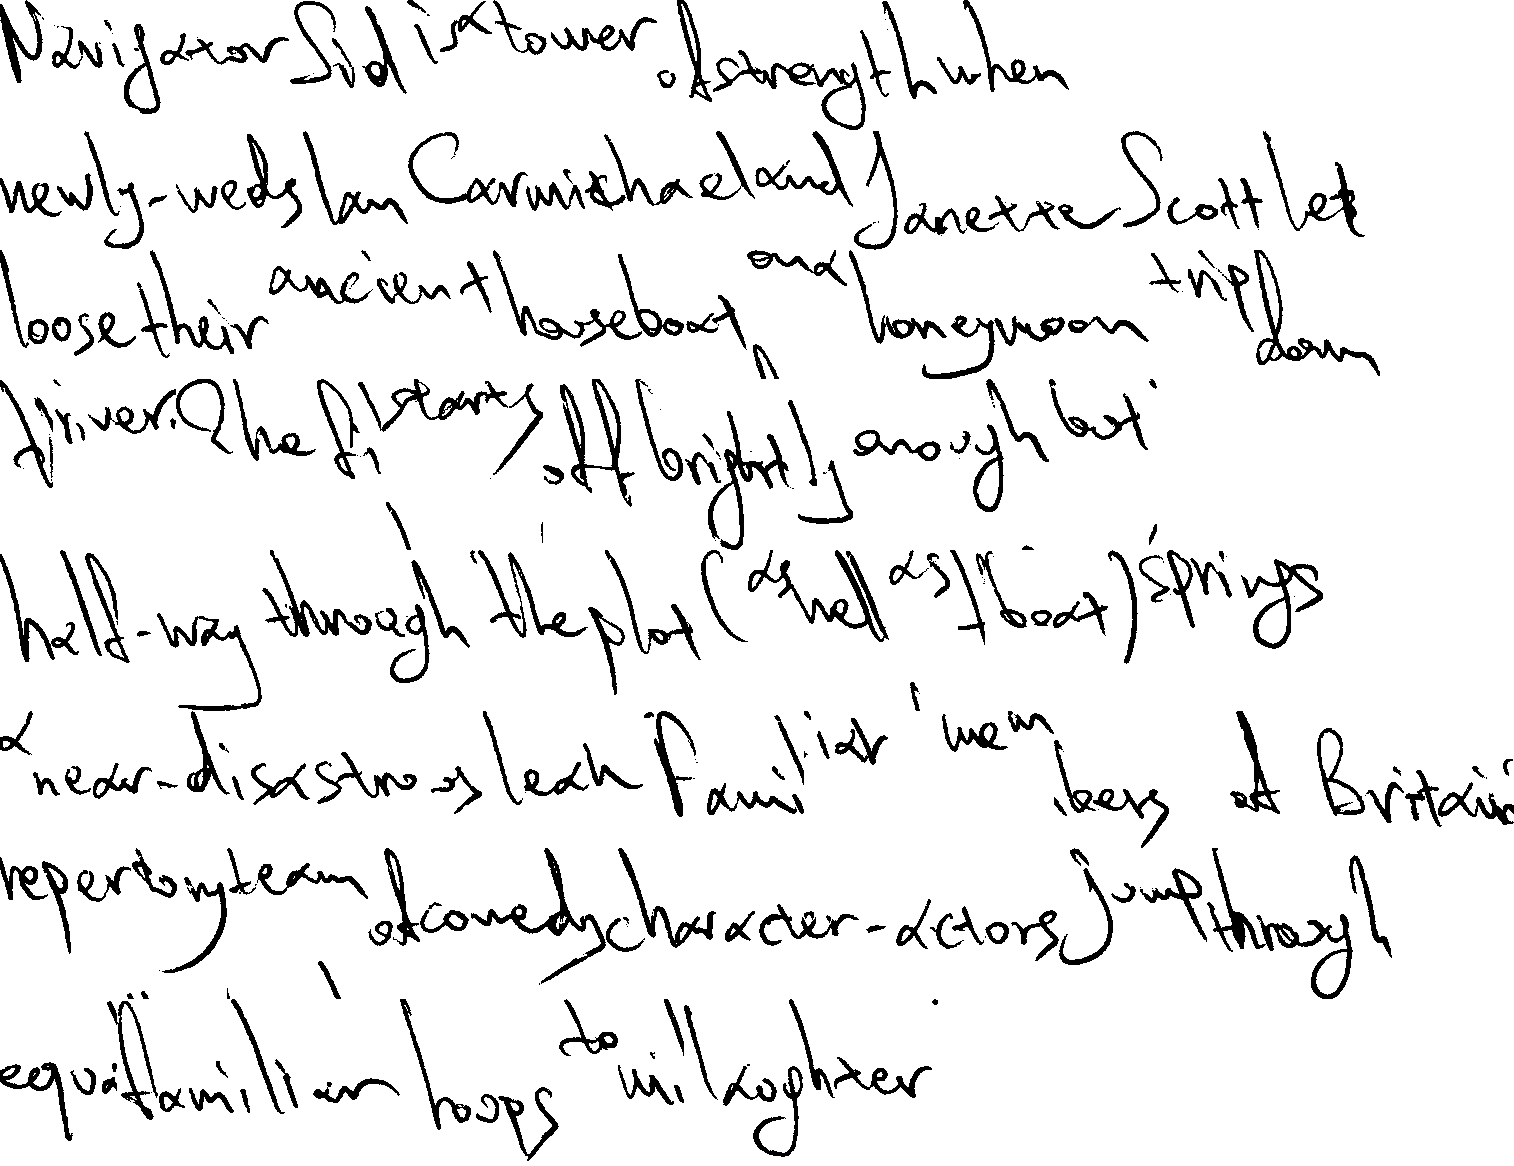 Navigator Sid is a tower of strength when
newly-weds Ian Carmichael and Janette Scott let
loose their ancient houseboat on a honeymoon trip down
river. The starts off brightly enough but
half-way through the plot (as well as boat) springs
a near-disastrous leak familiar members of Britain
repertory team of comedy character-actors jump through
familiar hoops to laughter